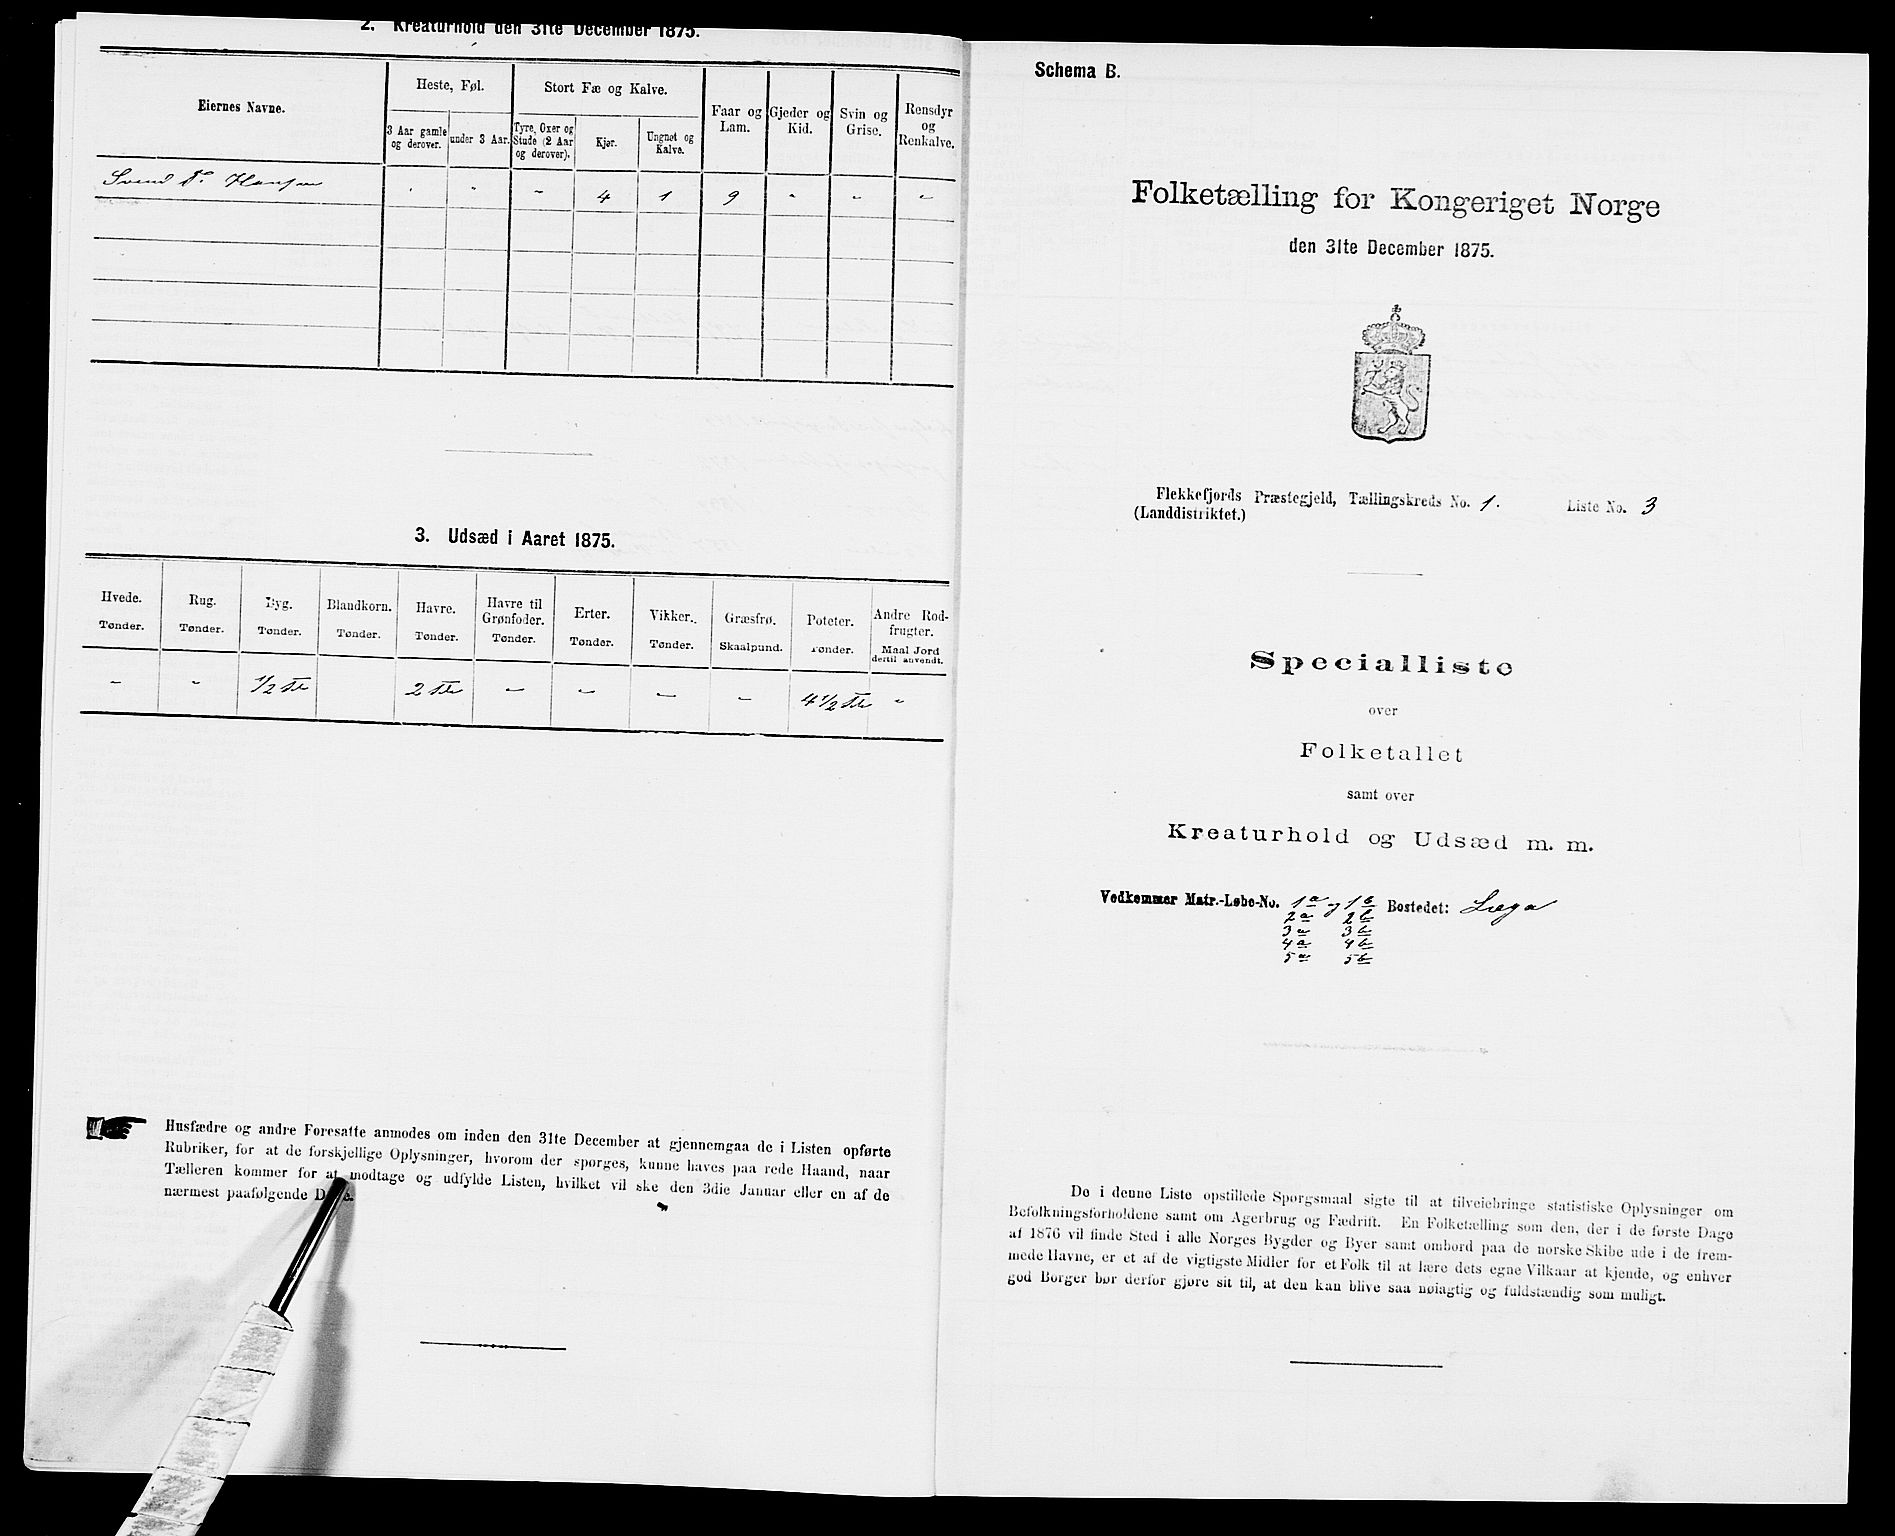 2. Kreaturhold den 31te December 1875.
Eiernes Navne.
Heste, Føl.
Stort Fæ og Kalve.
Faar og Lam.
Gjeder og Kid.
Svin og Grise.
Rensdyr og Renkalve.
3 Aar gamle og derover.
under 3 Aar.
Tyre, Oxer og Stude (2 Aar og derover).
Kjør.
Ungnøt og Kalve.
Svend Hansen " " " 4 1 9 " " "
3. Udsæd i Aaret 1875.
Hvede. Rug. Byg. Blandkorn. Havre. Havre til Grønfoder. Erter. Vikker. Græsfrø. Poteter. Andre Rodfrugter.
Tønder. Tønder. Tønder. Tønder. Tønder. Tønder. Tønder. Tønder. Skaalpund. Tønder. Maal Jord dertil anvendt.
" " 1/2 Tde 2 Tde " " " " 4 1/2 Tde "
Husfædre og andre Foresatte anmodes om inden den 31te December at gjennemgaa de i Listen opførte
Rubriker, for at de forskjellige Oplysninger, hvorom der spørges, kunne haves paa rede Haand, naar
Tælleren kommer for at modtage og udfylde Listen, hvilket vil ske den 3die Januar eller en af de
nærmest paafølgende
Schema B.
Folketælling for Kongeriget Norge
den 31te December 1875.
Flekkefjords Præstegjeld, Tællingskreds No. 1. Liste No. 3
(Landdistriktet.)
Specialliste
over
Folketallet
samt over
Kreaturhold og Udsæd m. m.
Vedkommer Matr.-Løbe-No. 1a og 1b Bostedet: Lega
2a 2b
3a 3b
4a 4b
5a 5b
De i denne Liste opstillede Spørgsmaal sigte til at tilveiebringe statistiske Oplysninger om
Befolkningsforholdene samt om Agerbrug og Fædrift. En Folketælling som den, der i de første Dage
af 1876 vil finde Sted i alle Norges Bygder og Byer samt ombord paa de norske Skibe ude i de frem-
mede Havne, er et af de vigtigste Midler for et Folk til at lære dets egne Vilkaar at kjende, og enhver
god Borger bør derfor gjøre sit til, at den kan blive saa nøiagtig og fuldstændig som muligt.